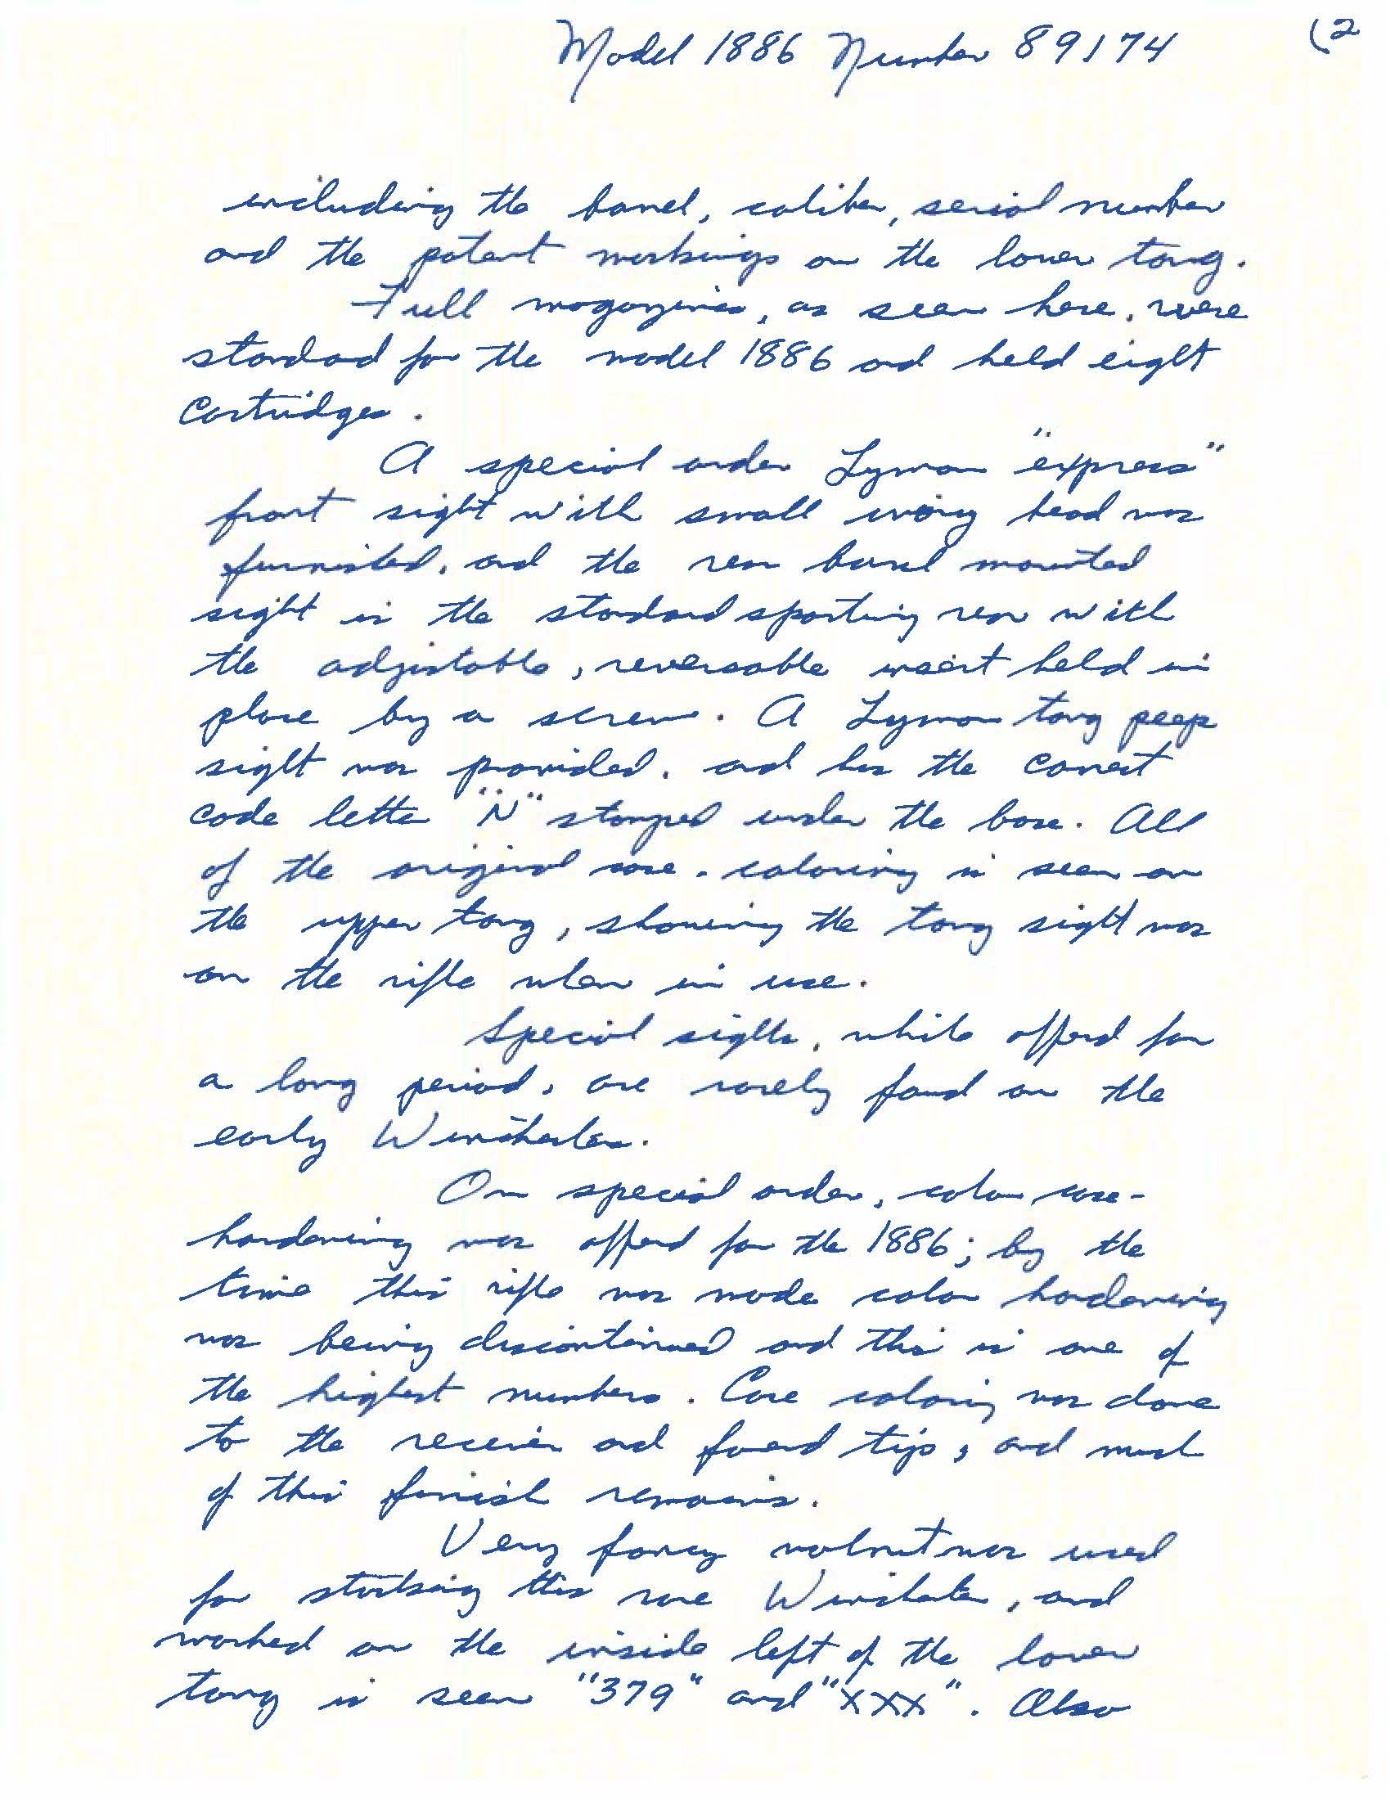 Model 1886 Number 89174 (2
including the barrel, caliber, serial number
and the patent markings on the lower tang.
Full magazines, as seen here, were
standard for the model 1886 and held eight
Cartridges.
A special order Lyman "express"
front sight with small ivory bead was
furnished, and the rear barrel mounted
sight is the standard sporting rear with
the adjustable, reversable insert held in
place by a screw. A Lyman tang peep
sight was provided, and has the correct
code letter "N" stamped under the base. All
of the original case-coloring is seen on
the upper tang, showing the tang sight was
on the rifle when in use.
Special sights, while offered for
a long period, are rarely found on the
early Winchesters.
On special order, color case-
hardening was offered for the 1886; by the
time this rifle was made color hardening
was being discontinued and this is one of
the highest numbers. Case coloring was done
to the receiver and forend tip, and much
of this finish remains.
Very fancy walnut was used
for stocking this rare Winchester, and
marked on the inside left of the lower
tang is seen "379" and "XXX". Also